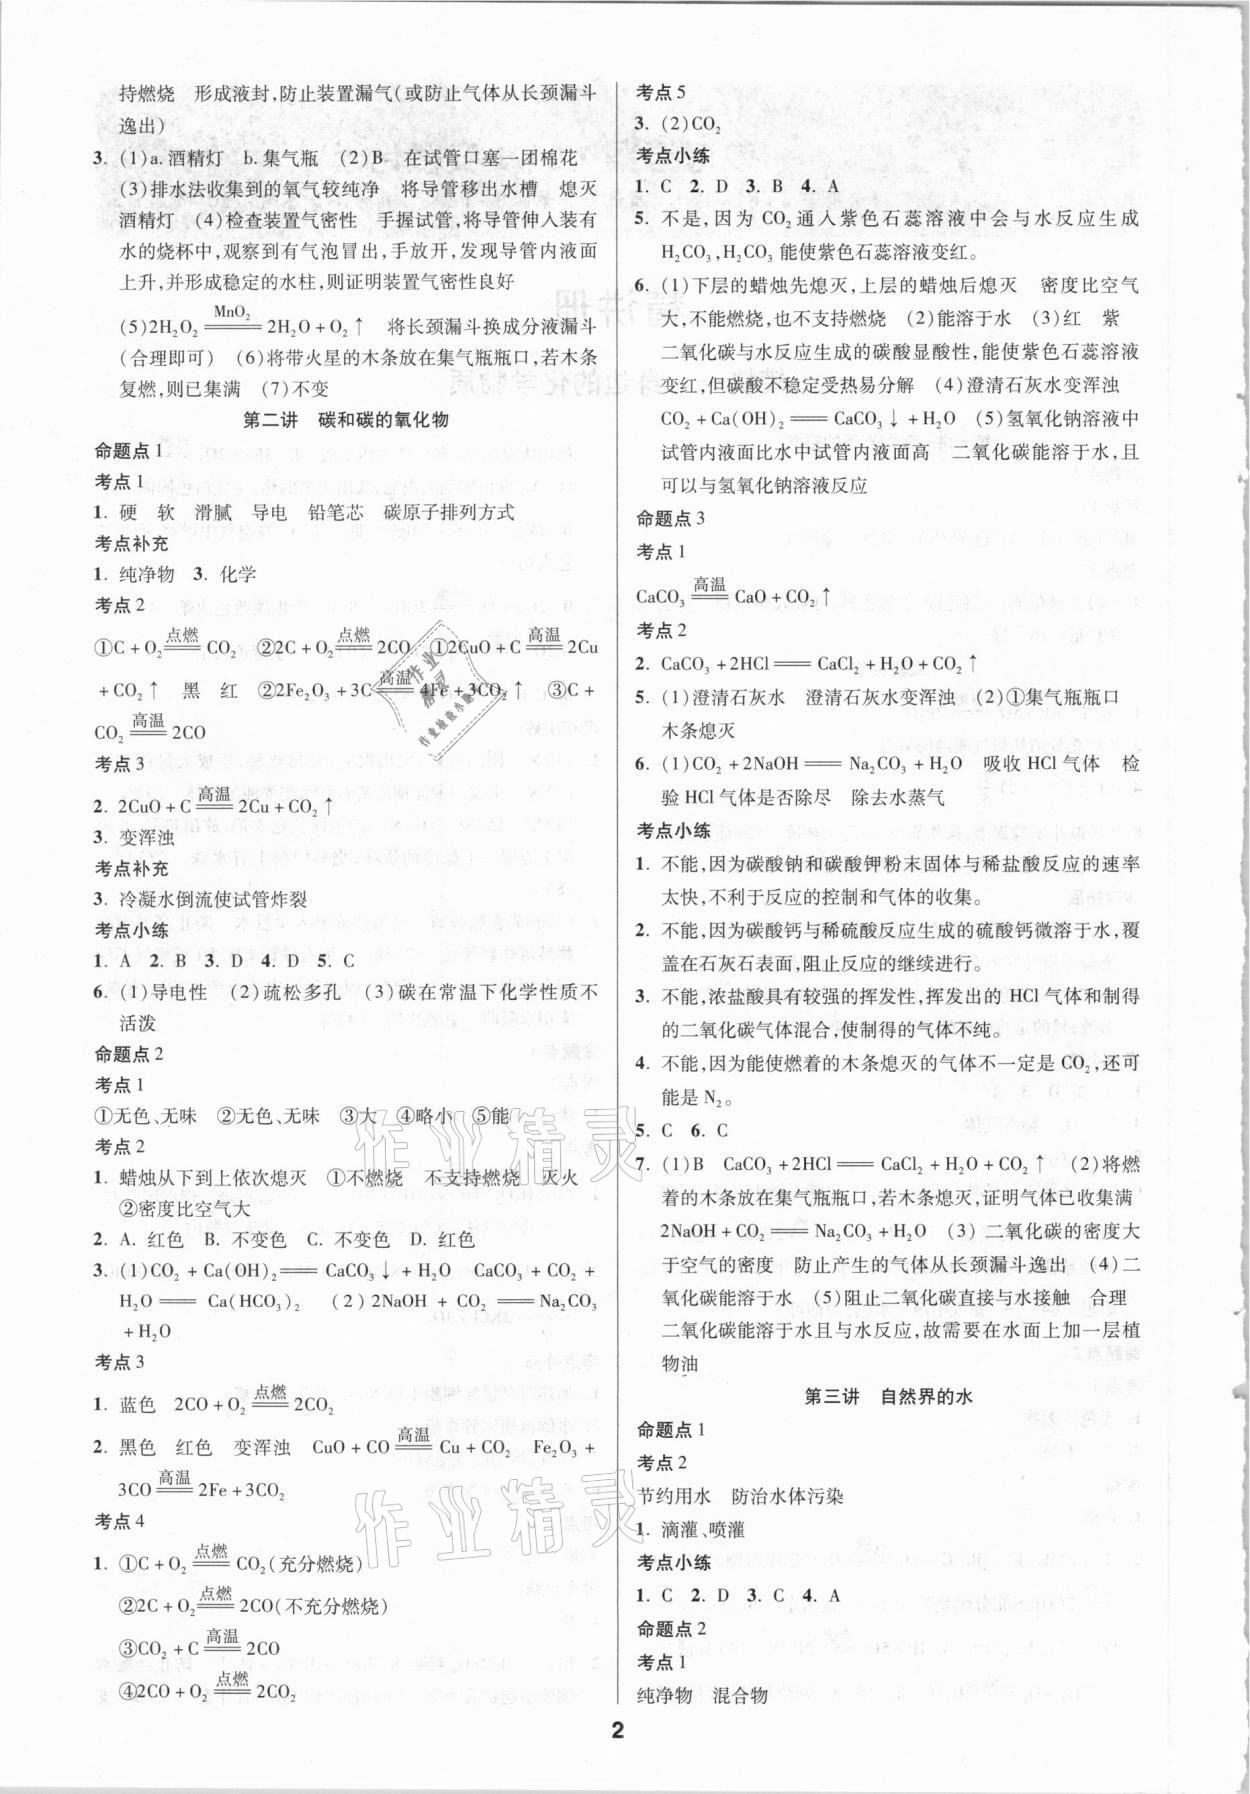 持燃烧　形成液封,防止装置漏气(或防止气体从长颈漏斗
逸出)
3. (1)a.酒精灯　b.集气瓶　(2)B　在试管口塞一团棉花
(3)排水法收集到的氧气较纯净　将导管移出水槽　熄灭
酒精灯　(4)检查装置气密性　手握试管,将导管伸入装有
水的烧杯中,观察到有气泡冒出,手放开,发现导管内液面
上升,并形成稳定的水柱,则证明装置气密性良好
(5)2H₂O₂ ══MnO₂══ 2H₂O+O₂↑　将长颈漏斗换成分液漏斗
(合理即可)　(6)将带火星的木条放在集气瓶瓶口,若木条
复燃,则已集满　(7)不变
第二讲　碳和碳的氧化物
命题点1
考点1
1. 硬　软　滑腻　导电　铅笔芯　碳原子排列方式
考点补充
1. 纯净物　3. 化学
考点2
①C+O₂ ══点燃══ CO₂　②2C+O₂ ══点燃══ 2CO　①2CuO+C ══高温══ 2Cu
+CO₂↑　黑　红　②2Fe₂O₃+3C ══高温══ 4Fe+3CO₂↑　③C+
CO₂ ══高温══ 2CO
考点3
2. 2CuO+C ══高温══ 2Cu+CO₂↑
3. 变浑浊
考点补充
3. 冷凝水倒流使试管炸裂
考点小练
1. A　2. B　3. D　4. D　5. C
6. (1)导电性　(2)疏松多孔　(3)碳在常温下化学性质不
活泼
命题点2
考点1
①无色、无味　②无色、无味　③大　④略小　⑤能
考点2
1. 蜡烛从下到上依次熄灭　①不燃烧　不支持燃烧　灭火
②密度比空气大
2. A. 红色　B. 不变色　C. 不变色　D. 红色
3. (1)CO₂+Ca(OH)₂══CaCO₃↓+H₂O　CaCO₃+CO₂+
H₂O══Ca(HCO₃)₂　(2)2NaOH+CO₂══Na₂CO₃
+H₂O
考点3
1. 蓝色　2CO+O₂ ══点燃══ 2CO₂
2. 黑色　红色　变浑浊　CuO+CO ══高温══ Cu+CO₂　Fe₂O₃+
3CO ══高温══ 2Fe+3CO₂
考点4
1. ①C+O₂ ══点燃══ CO₂(充分燃烧)
②2C+O₂ ══点燃══ 2CO(不充分燃烧)
③CO₂+C ══高温══ 2CO
④2CO+O₂ ══点燃══ 2CO₂
考点5
3. (2)CO₂
考点小练
1. C　2. D　3. B　4. A
5. 不是,因为CO₂通入紫色石蕊溶液中会与水反应生成
H₂CO₃,H₂CO₃能使紫色石蕊溶液变红。
6. (1)下层的蜡烛先熄灭,上层的蜡烛后熄灭　密度比空气
大,不能燃烧,也不支持燃烧　(2)能溶于水　(3)红　紫
二氧化碳与水反应生成的碳酸显酸性,能使紫色石蕊溶液
变红,但碳酸不稳定受热易分解　(4)澄清石灰水变浑浊
CO₂+Ca(OH)₂══CaCO₃↓+H₂O　(5)氢氧化钠溶液中
试管内液面比水中试管内液面高　二氧化碳能溶于水,且
可以与氢氧化钠溶液反应
命题点3
考点1
CaCO₃ ══高温══ CaO+CO₂↑
考点2
2. CaCO₃+2HCl══CaCl₂+H₂O+CO₂↑
5. (1)澄清石灰水　澄清石灰水变浑浊　(2)①集气瓶瓶口
木条熄灭
6. (1)CO₂+2NaOH══Na₂CO₃+H₂O　吸收HCl气体　检
验HCl气体是否除尽　除去水蒸气
考点小练
1. 不能,因为碳酸钠和碳酸钾粉末固体与稀盐酸反应的速率
太快,不利于反应的控制和气体的收集。
2. 不能,因为碳酸钙与稀硫酸反应生成的硫酸钙微溶于水,覆
盖在石灰石表面,阻止反应的继续进行。
3. 不能,浓盐酸具有较强的挥发性,挥发出的HCl气体和制得
的二氧化碳气体混合,使制得的气体不纯。
4. 不能,因为能使燃着的木条熄灭的气体不一定是CO₂,还可
能是N₂。
5. C　6. C
7. (1)B　CaCO₃+2HCl══CaCl₂+H₂O+CO₂↑　(2)将燃
着的木条放在集气瓶瓶口,若木条熄灭,证明气体已收集满
2NaOH+CO₂══Na₂CO₃+H₂O　(3)二氧化碳的密度大
于空气的密度　防止产生的气体从长颈漏斗逸出　(4)二
氧化碳能溶于水　(5)阻止二氧化碳直接与水接触　合理
二氧化碳能溶于水且与水反应,故需要在水面上加一层植
物油
第三讲　自然界的水
命题点1
考点2
节约用水　防治水体污染
1. 滴灌、喷灌
考点小练
1. C　2. D　3. C　4. A
命题点2
考点1
纯净物　混合物
2
作业精灵
作业精灵